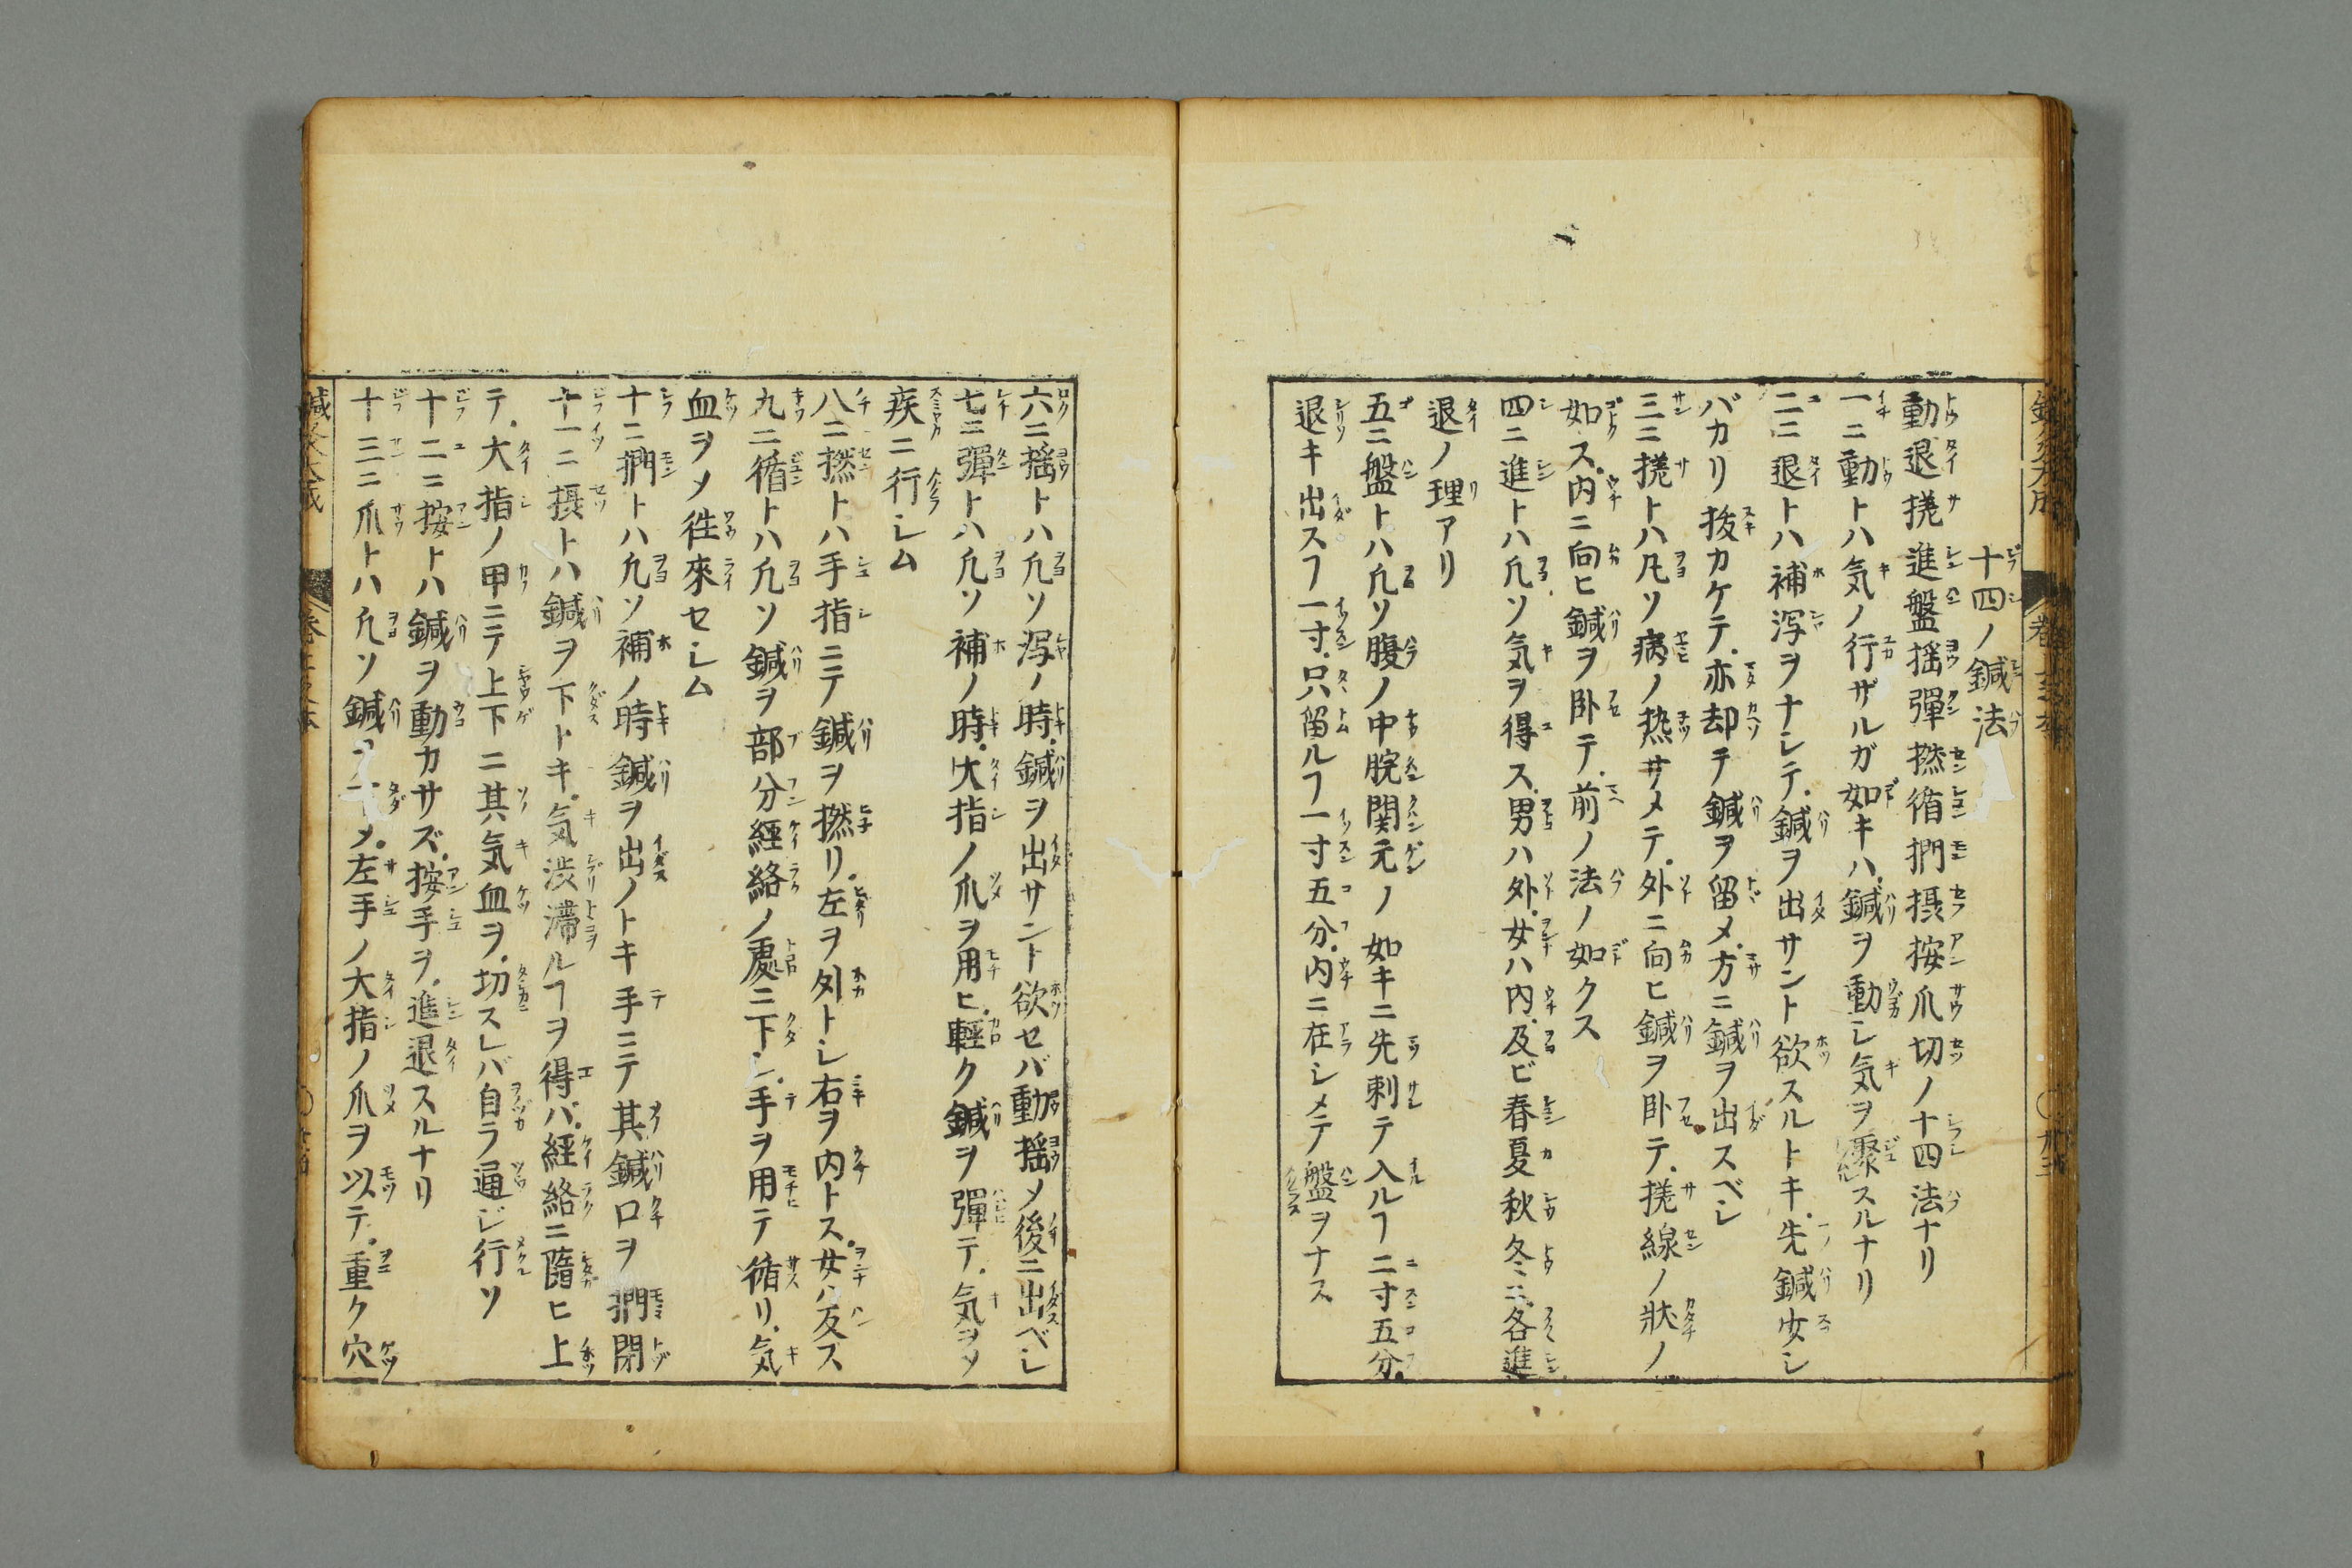 十四ノ鍼法
動退搓進盤揺彈撚循捫摂按爪切ノ十四法ナリ
一ニ動トハ気ノ行ザルガ如キハ鍼ヲ動シ気ヲ聚スルナリ
二ニ退トハ補泻ヲナシテ鍼ヲ出サント欲スルトキ先鍼少シ
バカリ抜カケテ亦却テ鍼ヲ留メ方ニ鍼ヲ出スベシ
三ニ搓トハ凡ソ病ノ热サメテ外ニ向ヒ鍼ヲ卧テ搓線ノ狀ノ
如ス内ニ向ヒ鍼ヲ卧テ前ノ法ノ如クス
四ニ進トハ凢ソ気ヲ得ス男ハ外女ハ内及ビ春夏秋冬ニ各進
退ノ理アリ
五ニ盤トハ凢ソ腹ノ中脘関元ノ如キニ先刺テ入ルヿ二寸五分
退キ出スヿ一寸只留ルヿ一寸五分内ニ在シメテ盤ヲナス
六ニ揺トハ凢ソ泻ノ時鍼ヲ出サント欲セバ動揺メ後ニ出ベシ
七ニ彈トハ凢ソ補ノ時大指ノ爪ヲ用ヒ輕ク鍼ヲ彈テ気ヲメ
疾ニ行シム
八ニ撚トハ手指ニテ鍼ヲ撚リ左ヲ外トシ右ヲ内トス女ハ反ス
九ニ循トハ凢ソ鍼ヲ部分經絡ノ處ニ下シ手ヲ用テ循リ気
血ヲメ徃來セシム
十ニ捫トハ凢ソ補ノ時鍼ヲ出ノトキ手ニテ其鍼口ヲ捫閉
十一ニ摂トハ鍼ヲ下トキ気渋滯ルヿヲ得バ經絡ニ隨ヒ上
テ大指ノ甲ニテ上下ニ其気血ヲ切スレバ自ラ通ジ行ソ
十二ニ按トハ鍼ヲ動カサズ按手ヲ進退スルナリ
十三ニ爪トハ凢ソ鍼ヲ下メ左手ノ大指ノ爪ヲ以テ重ク穴